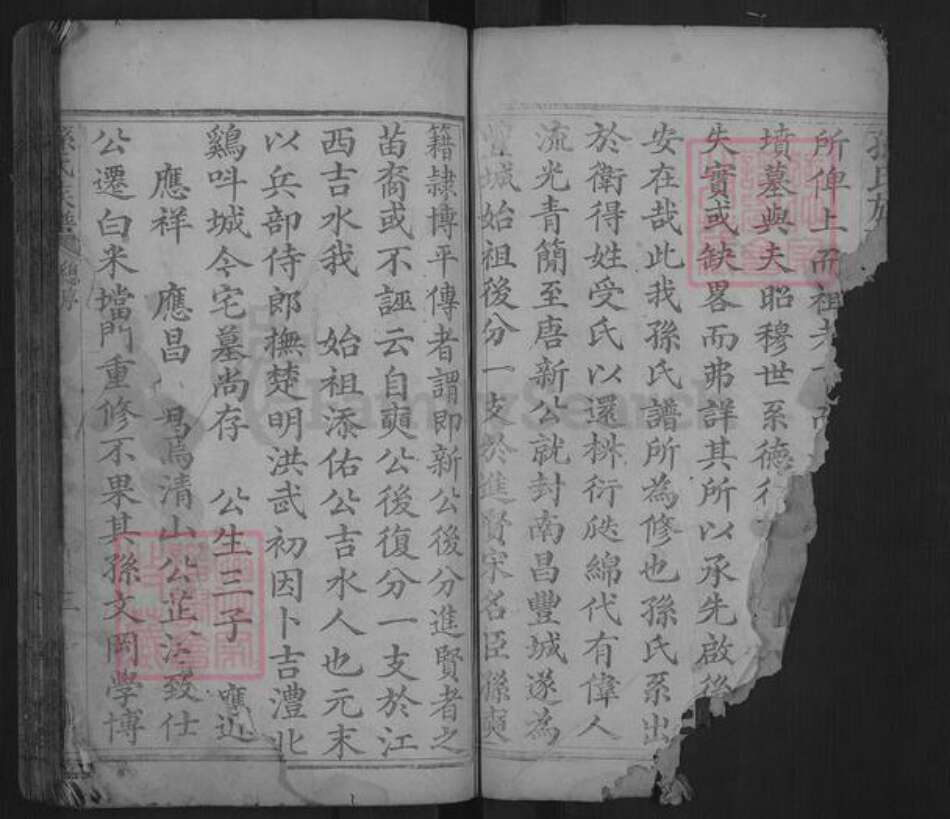 孫氏族
所俾上而祖
墳墓與夫昭穆世系德行
失實或缺畧而弗詳其所以承先啟後
安在哉此我孫氏譜所為修也孫氏系出
於衛得姓受氏以還椒衍瓞綿代有偉人
流光青簡至唐新公就封南昌豐城遂為
豐城始祖後分一支於進賢宋名臣孫奭
籍隷博平傳者謂即新公後分進賢者之
苗裔或不誣云自奭公後復分一支於江
西吉水我 始祖添佑公吉水人也元末
以兵部侍郎撫楚明洪武初因卜吉澧北
鷄呌城今宅墓尚存 公生三子 應近
應祥 應昌 清山公芷江致仕
公遷白米壋門重修不果其孫文岡學博
孫氏族譜 總序 三
FamilySearch